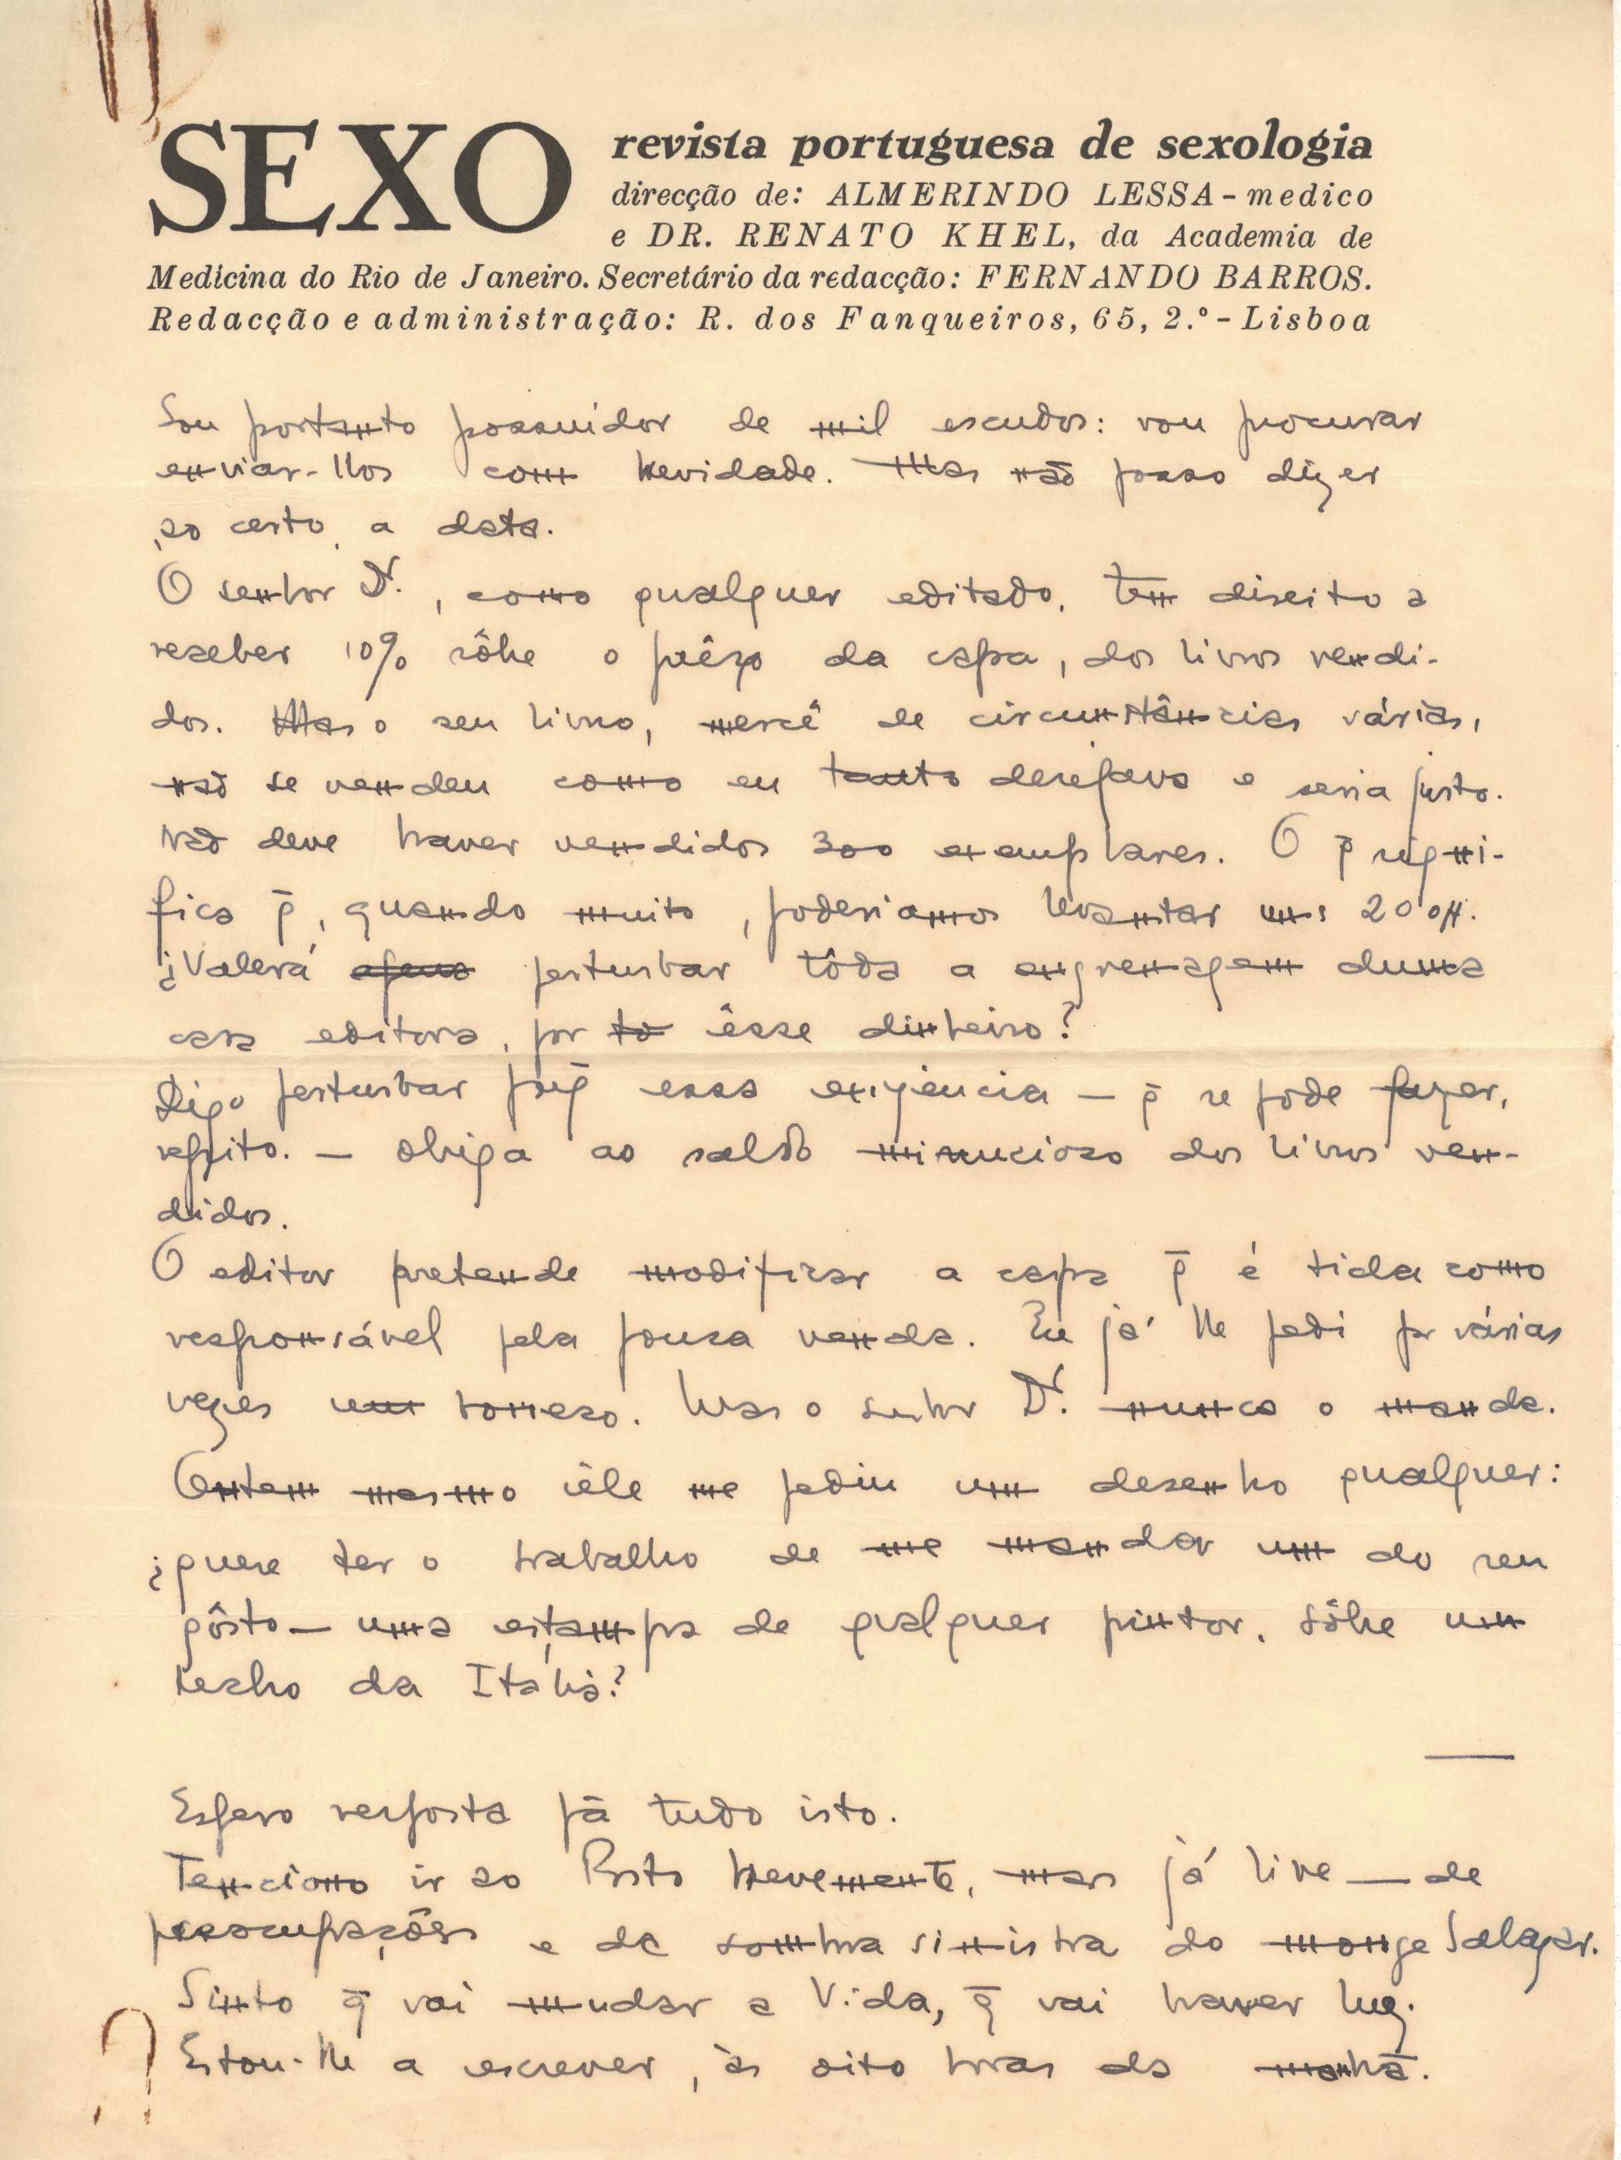 SEXO revista portuguesa de sexologia
direcção de: ALMERINDO LESSA - medico
e DR. RENATO KHEL, da Academia de
Medicina do Rio de Janeiro. Secretário da redacção: FERNANDO BARROS.
Redacção e administração: R. dos Fanqueiros, 65, 2.º - Lisboa
Sou portanto possuidor de mil escudos: vou procurar
enviar-lhos com brevidade. Mas não posso dizer
, ao certo, a data.
O senhor Dr., como qualquer editado, tem direito a
receber 10% sôbre o prêço da capa, dos livros vendi-
dos. Mas o seu livro, mercê de circunstâncias várias,
não se vendeu como eu tanto desejava e seria justo.
Não deve haver vendidos 300 exemplares. O q̄ signi-
fica q̄, quando muito, poderiamos levantar uns 200$.
¿Valerá perturbar tôda a engrenagem duma
casa editora, por êsse dinheiro?
Digo perturbar porq̄ essa exigência — q̄ se pode fazer,
repito. — obriga ao saldo minucioso dos livros ven-
didos.
O editor pretende modificar a capa q̄ é tida como
responsável pela pouca venda. Eu já lhe pedi por várias
vezes um boneco. Mas o senhor Dr. nunca o manda.
Ontem mesmo êle me pediu um desenho qualquer:
¿quere ter o trabalho de me mandar um do seu
gôsto — uma estampa de qualquer pintor, sôbre um
trecho da Itália?
Espero resposta pā tudo isto.
Tenciono ir ao Porto brevemente, mas já livre — de
preocupações e da sombra sinistra do monge Salazar.
Sinto q̄ vai mudar a Vida, q̄ vai haver luz.
Estou-lhe a escrever, às oito horas da manhã.